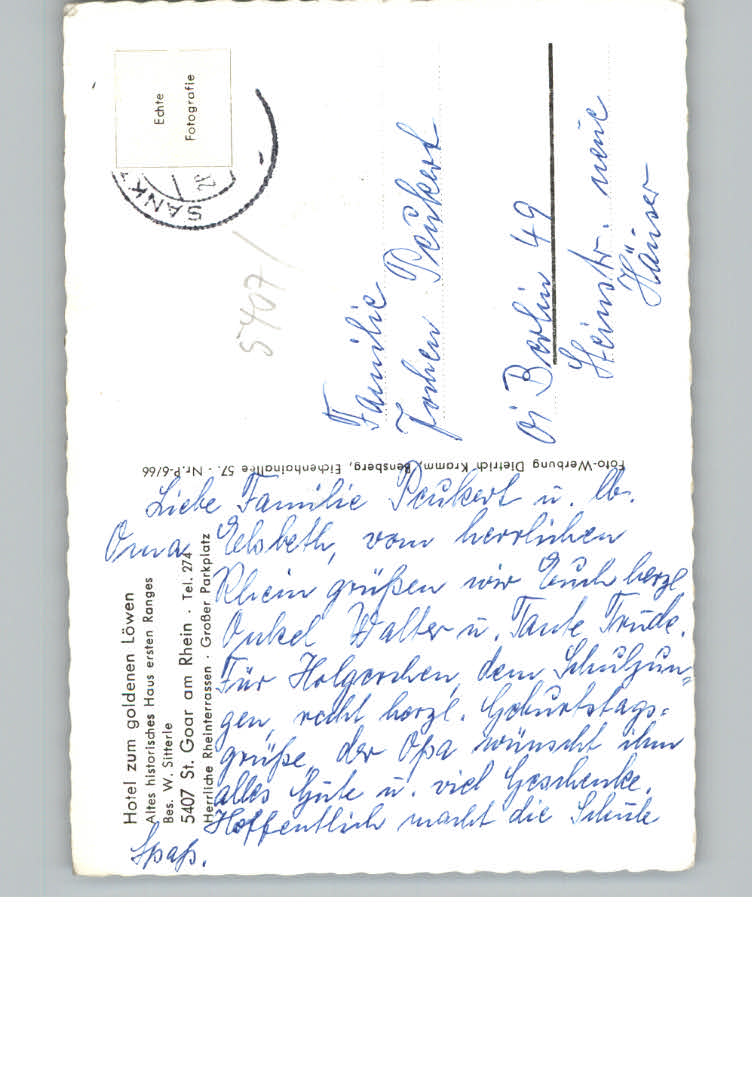 Hotel zum goldenen Löwen
Altes historisches Haus ersten Ranges
Bes. W. Sitterle
5407 St. Goar am Rhein · Tel. 274
Herrliche Rheinterrassen · Großer Parkplatz
Liebe Familie Peukert u. lb.
Oma Elsbeth, vom herrlichen
Rhein grüßen wir Euch herzl
Onkel Walter u. Tante Trude.
Für Holgerchen, dem Schuljun-
gen, recht herzl. Geburtstags=
grüße, der Opa wünscht ihm
alles Gute u. viel Geschenke.
Hoffentlich macht die Schule
Spaß.
Foto-Werbung Dietrich Kramm, Bensberg, Eichenhainallee 57. - Nr.P-6/66
Echte
Fotografie
SANKT
28
5407/
Familie
Jochen Peukert
Berlin 49
Steinstr. neue
Häuser